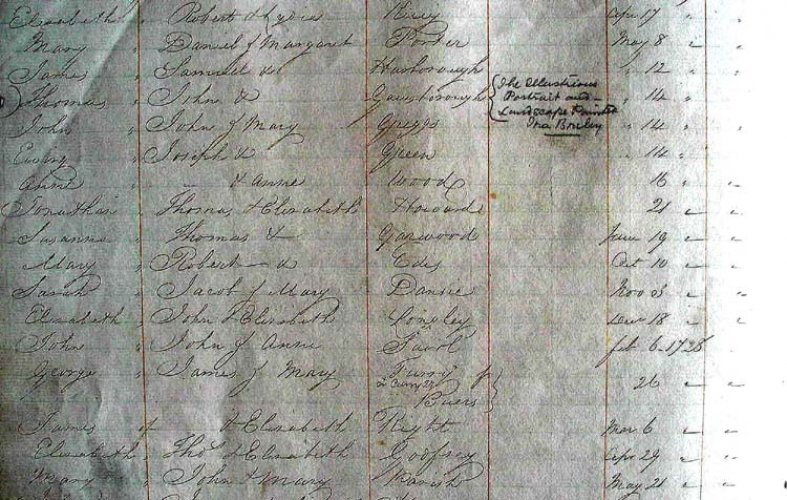 Elizabeth " Robert & Lydia Apr 17 "
Mary " Daniel & Margaret Porter May 8 " "
James " Samuel & Harborough " 12 "
Thomas " John & Gainsborough { The Illustrious Portrait and Landscape Painter Ira Bouley " 14 "
John " John & Mary Griggs " 14 "
Joseph & Green 14 "
Anne " & Anne Wood 16 "
Jonathan " Thomas & Elizabeth Howard 21
Susanna " Thomas & Garwood June 19
Mary " Robert & Edes Oct 10
Sarah " Jacob & Mary Nov 3
Elizabeth " John & Elizabeth Longley Dec 18
John " John & Anne feb 6 1728
George " James & Mary Furry or 26
James of & Elizabeth Mar 6
Elizabeth " Thos & Elizabeth Godfrey Apr 29
Mary John & Mary Parish May 21